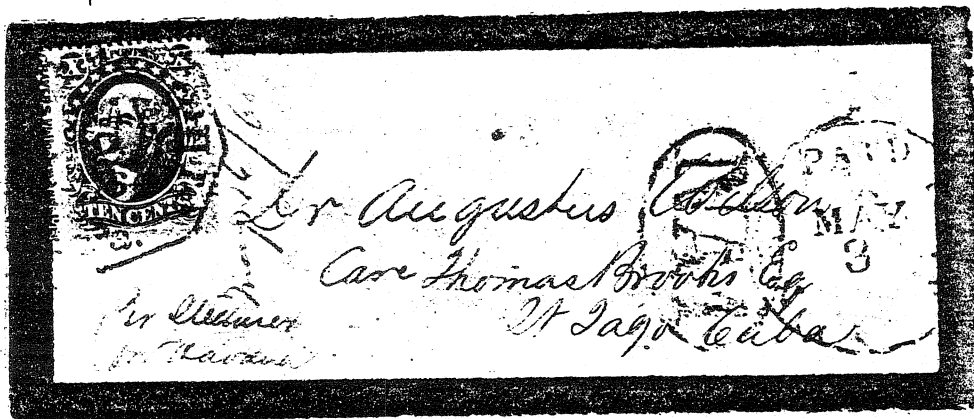 TEN CENTS
PAID
MAY
3
Dr Augustus Wilson
Care Thomas Brooks Esq
St Jago Cuba
Per Steamer
for Havana